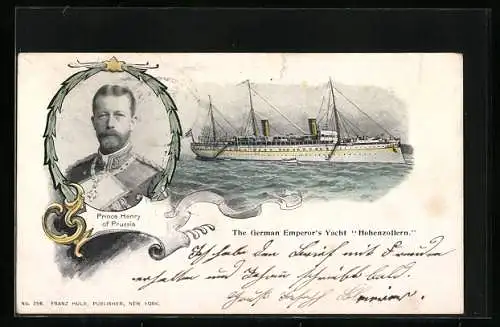 Prince Henry
of Prussia
The German Emperor's Yacht "Hohenzollern."
Ich habe den Brief mit Freude
erhalten und schreibe bald.
Gruß
No. 256. FRANZ HULD, PUBLISHER, NEW YORK.